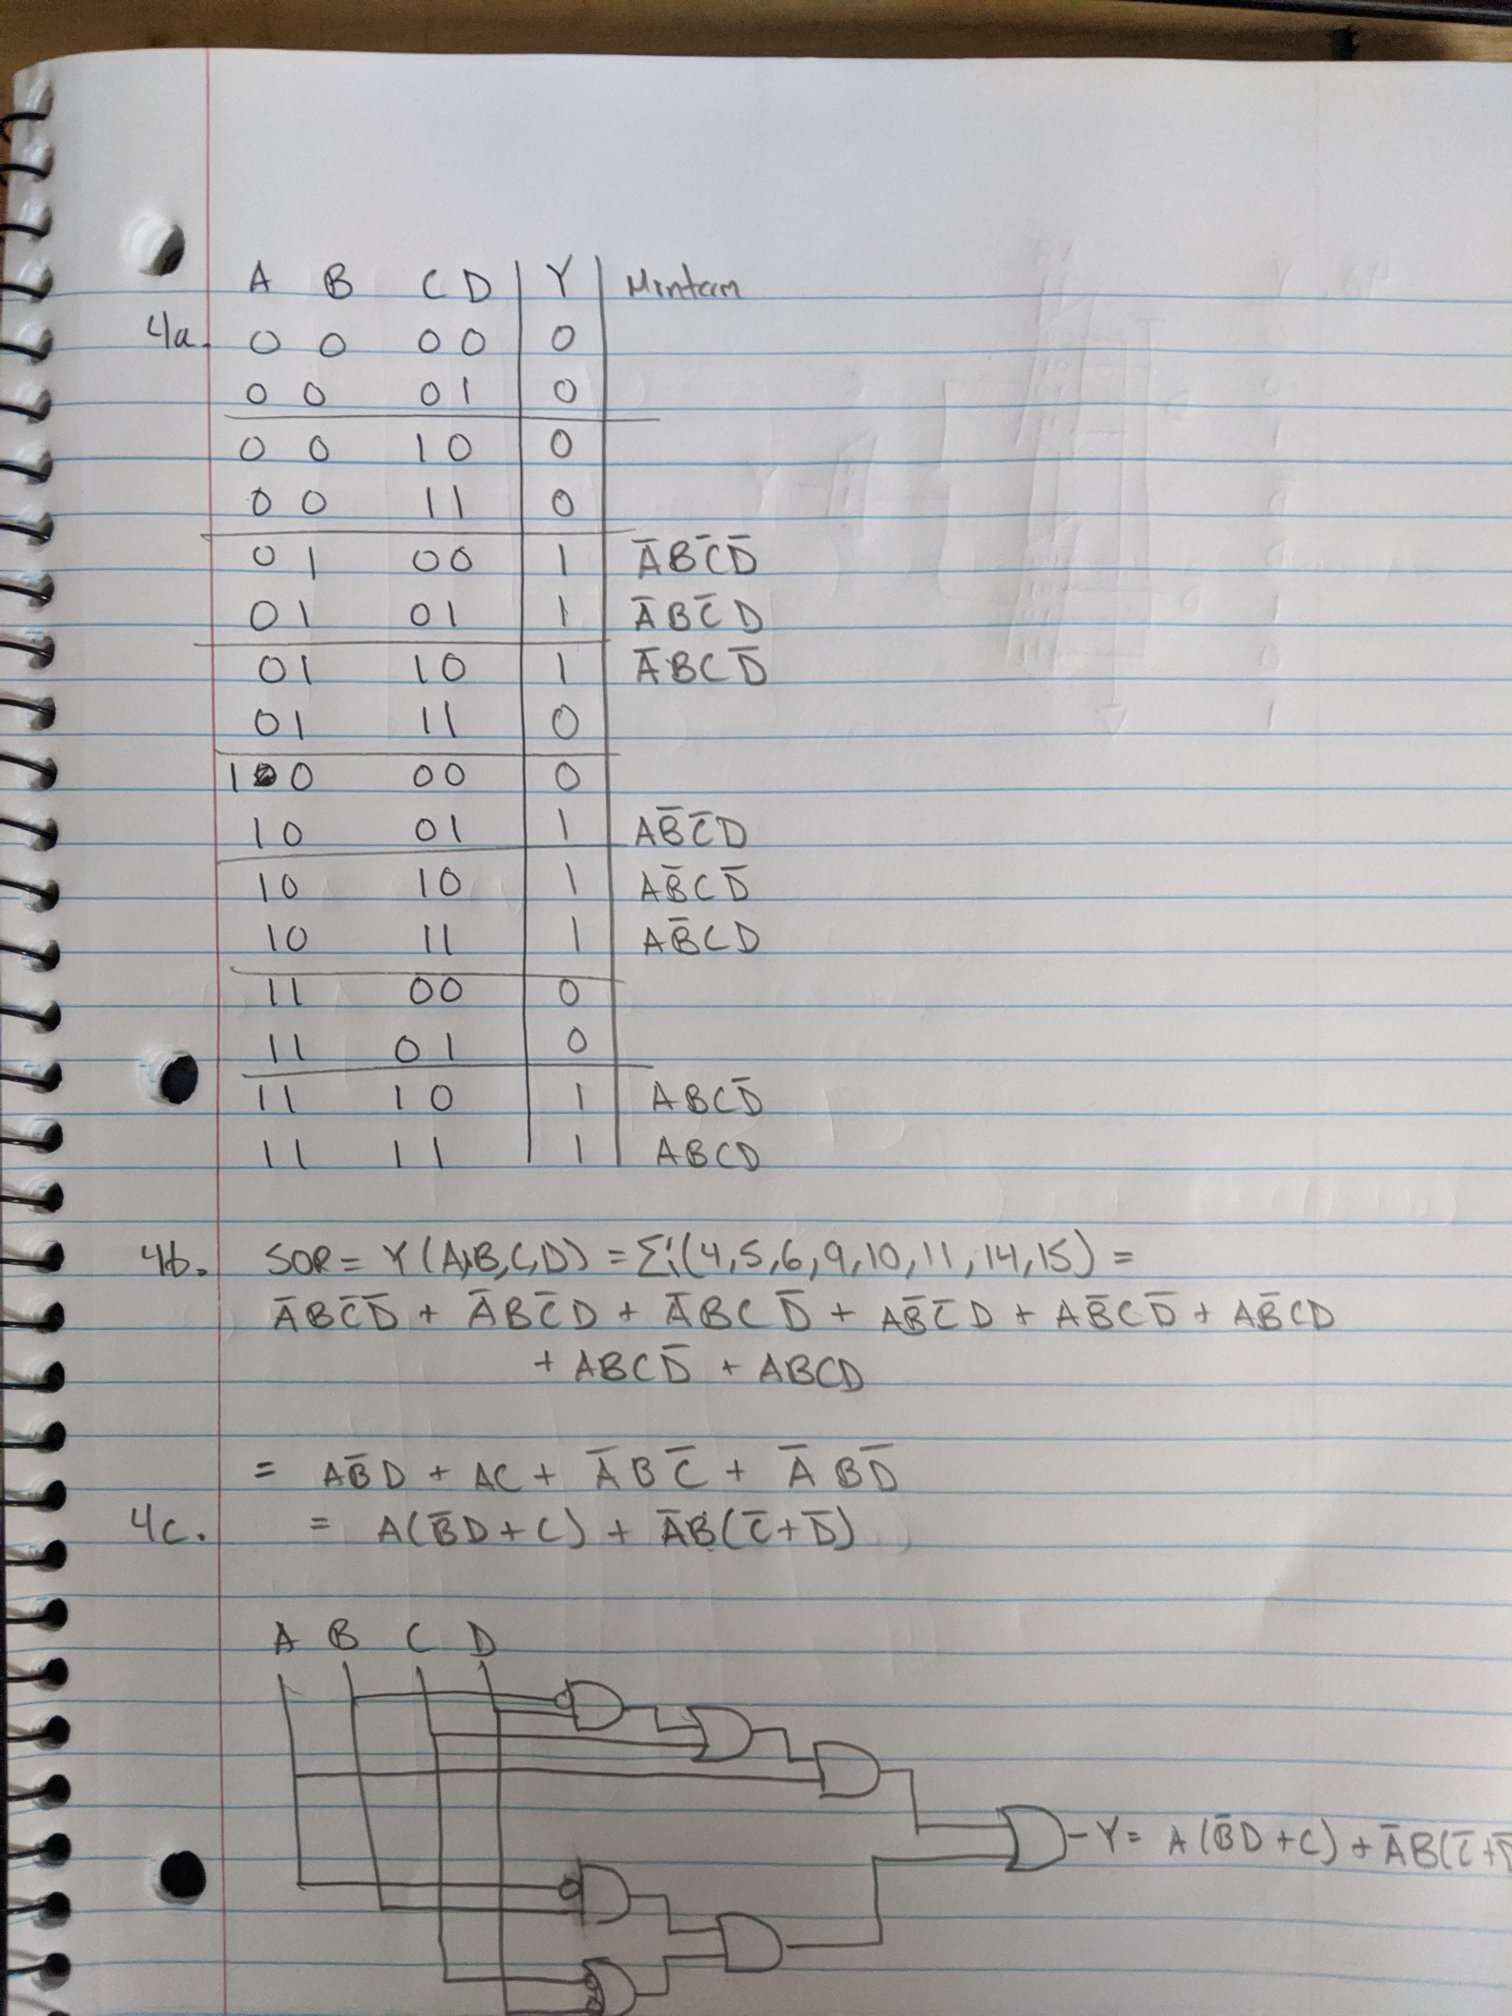 A B C D Y Minterm
4a. 0 0 0 0 0
0 0 0 1 0
0 0 1 0 0
0 0 1 1 0
0 1 0 0 1 A̅BC̅D̅
0 1 0 1 1 A̅BC̅D
0 1 1 0 1 A̅BCD̅
0 1 1 1 0
1 0 0 0 0
1 0 0 1 1 AB̅C̅D
1 0 1 0 1 AB̅CD̅
1 0 1 1 1 AB̅CD
1 1 0 0 0
1 1 0 1 0
1 1 1 0 1 ABCD̅
1 1 1 1 1 ABCD
4b. SOP = Y(A,B,C,D) = Σ(4,5,6,9,10,11,14,15) =
A̅BC̅D̅ + A̅BC̅D + A̅BCD̅ + AB̅C̅D + AB̅CD̅ + AB̅CD
+ ABCD̅ + ABCD
= AB̅D + AC + A̅BC̅ + A̅BD̅
4c. = A(B̅D+C) + A̅B(C̅+D̅)
A B C D
Y = A(B̅D+C) + A̅B(C̅+D̅